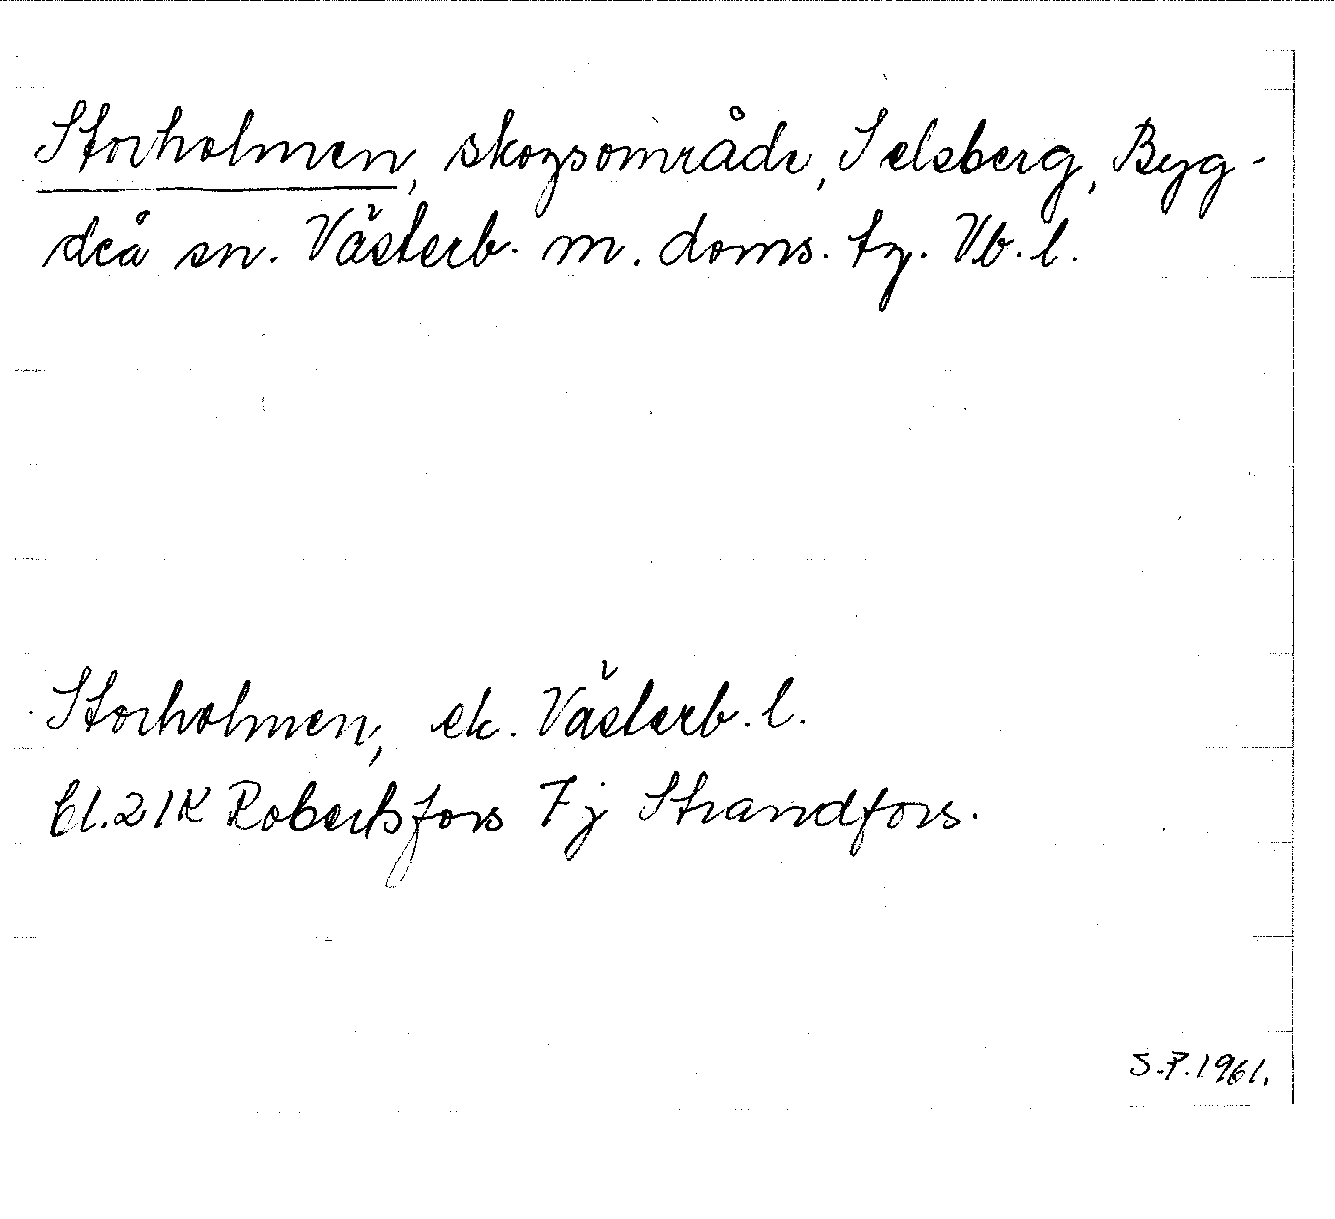 Storholmen, skogsområde, Selsberg, Byg-
deå sn. Västerb. m. doms. tg. Vb. l.
Storholmen, ek. Västerb. l.
bl. 21K Robertsfors 7j Strandfors.
S.P. 1961.